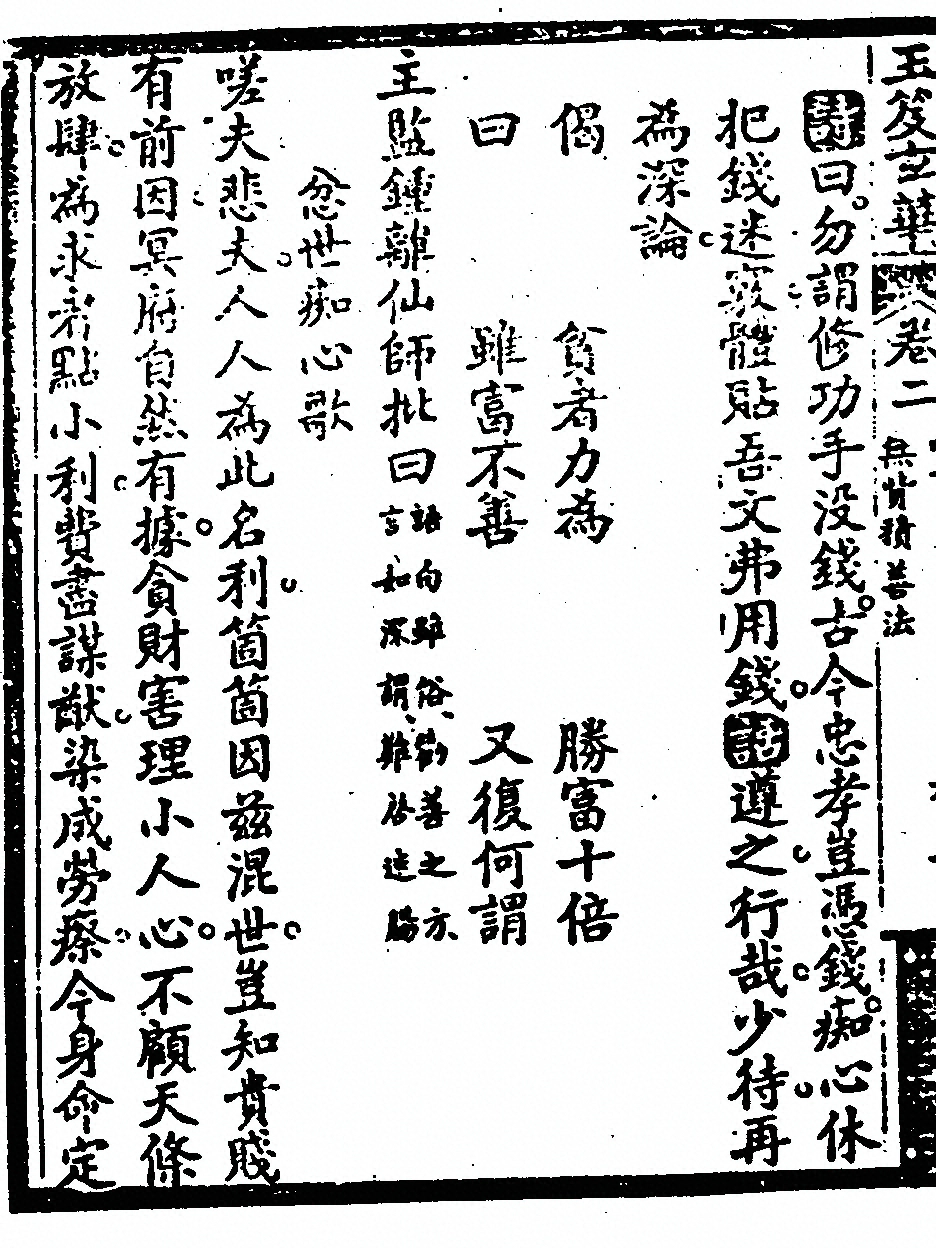 玉笈玄華 卷二 無貲積善法
曰勿謂修功手没錢古今忠孝豈憑錢痴心休
把錢迷竅體貼吾文弗用錢 遵之行哉少待再
為深論
偈 貧者力為 勝富十倍
曰 雖富不善 又復何謂
主監鍾離仙師批曰 語向雖俗勸善之方
言如深謂難啓迷腸
忿世痴心歌
嗟夫悲夫人人為此名利箇箇因茲混世豈知貴賤
有前因冥府自然有據貪財害理小人心不顧天條
放肆為求者點小利費盡謀猷染成勞瘵今身命定